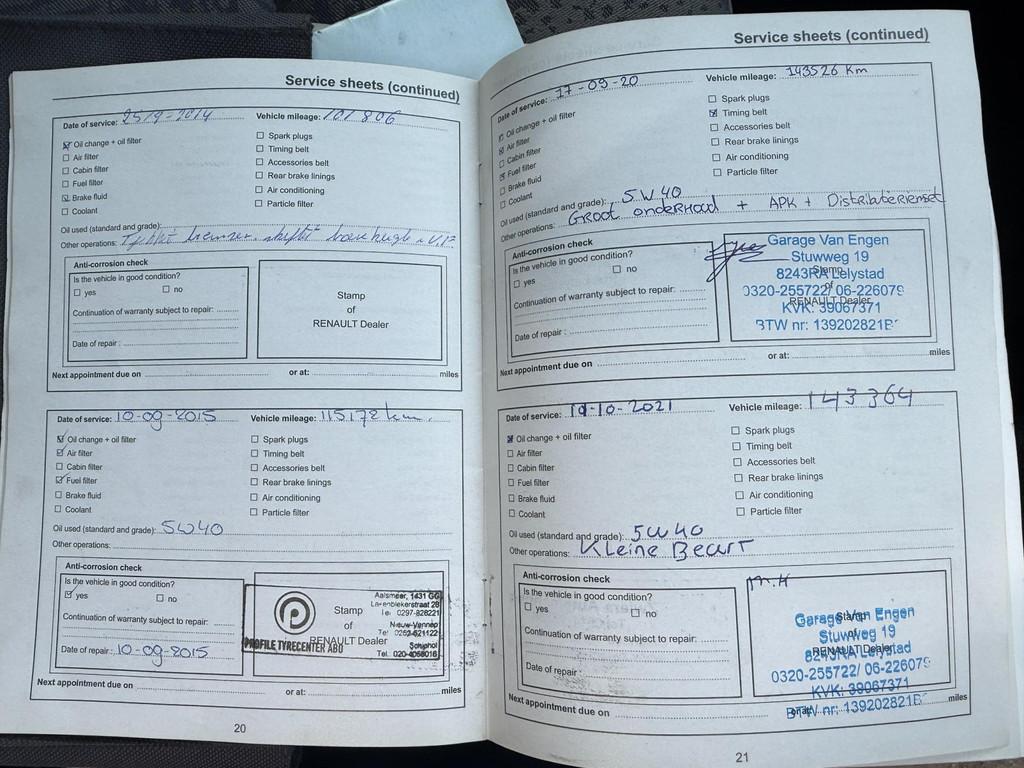 Service sheets (continued)
Date of service: 25/9-2014 Vehicle mileage: 101806
Oil change + oil filter
Air filter
Cabin filter
Fuel filter
Brake fluid
Coolant
Spark plugs
Timing belt
Accessories belt
Rear brake linings
Air conditioning
Particle filter
Oil used (standard and grade):
Other operations:
Anti-corrosion check
Is the vehicle in good condition?
yes no
Continuation of warranty subject to repair:
Date of repair :
Stamp
of
RENAULT Dealer
Next appointment due on or at: miles
Date of service: 10-09-2015 Vehicle mileage: 115,172 km.
Oil change + oil filter
Air filter
Cabin filter
Fuel filter
Brake fluid
Coolant
Spark plugs
Timing belt
Accessories belt
Rear brake linings
Air conditioning
Particle filter
Oil used (standard and grade): 5W40
Other operations:
Anti-corrosion check
Is the vehicle in good condition?
yes no
Continuation of warranty subject to repair:
Date of repair : 10-09-2015
Stamp
of
RENAULT Dealer
PROFILE TYRECENTER ABU
Aalsmeer, 1431 GG
Tel. 0297-828221
Nieuw-Vennep
Tel. 0252-621122
Schiphol
Next appointment due on or at: miles
20
Service sheets (continued)
Date of service: 17-09-20 Vehicle mileage: 143526 Km
Oil change + oil filter
Air filter
Cabin filter
Fuel filter
Brake fluid
Coolant
Spark plugs
Timing belt
Accessories belt
Rear brake linings
Air conditioning
Particle filter
Oil used (standard and grade): 5W40
Other operations: Groot onderhoud + APK + Distributieriemset
Anti-corrosion check
Is the vehicle in good condition?
yes no
Continuation of warranty subject to repair:
Date of repair :
Stamp
of
RENAULT Dealer
Garage Van Engen
Stuwweg 19
8243RA Lelystad
0320-255722/ 06-226079
KVK: 39067371
BTW nr: 139202821B
Next appointment due on or at: miles
Date of service: 19-10-2021 Vehicle mileage: 143364
Oil change + oil filter
Air filter
Cabin filter
Fuel filter
Brake fluid
Coolant
Spark plugs
Timing belt
Accessories belt
Rear brake linings
Air conditioning
Particle filter
Oil used (standard and grade): 5W40
Other operations: Kleine Beurt
Anti-corrosion check
Is the vehicle in good condition?
yes no
Continuation of warranty subject to repair:
Date of repair :
M.H
Stamp
of
RENAULT Dealer
Garage Van Engen
Stuwweg 19
8243RA Lelystad
0320-255722/ 06-226079
KVK: 39067371
BTW nr: 139202821B
Next appointment due on or at: miles
21